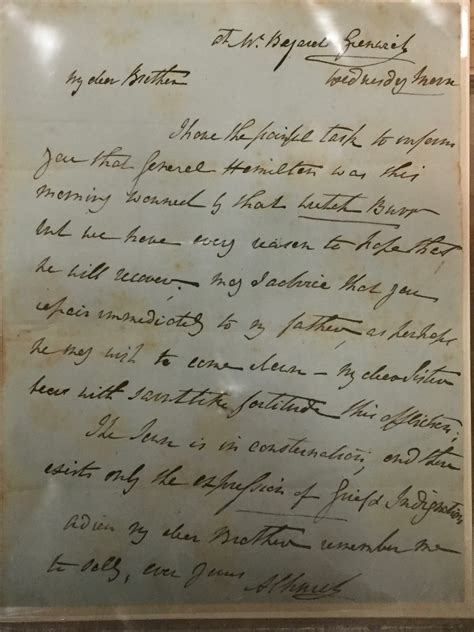 at Mr Bayard Greenwich
Wednesday Morn
My dear Brother
I have the painful task to inform
you that General Hamilton was this
morning wounded by that wretch Burr
but we have every reason to hope that
he will recover. May I advice that you
repair immediately to my father, as perhaps
he may wish to come down – My dear Sister
bears with saintlike fortitude this affliction.
The Town is in consternation, and there
exists only the expression of Grief & Indignation
Adieu my dear Brother remember me
to Sally, ever Yours
A Church